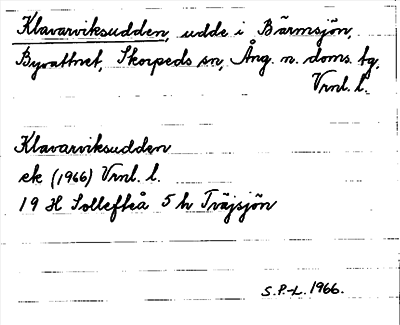 Klavarviksudden, udde i Bärmsjön,
Byvattnet, Skorpeds sn, Ång. n. doms. tg.
Vrnl. l.
Klavarviksudden
ek (1966) Vrnl. l.
19 H Sollefteå 5 h Träjsjön
S.P-L. 1966.